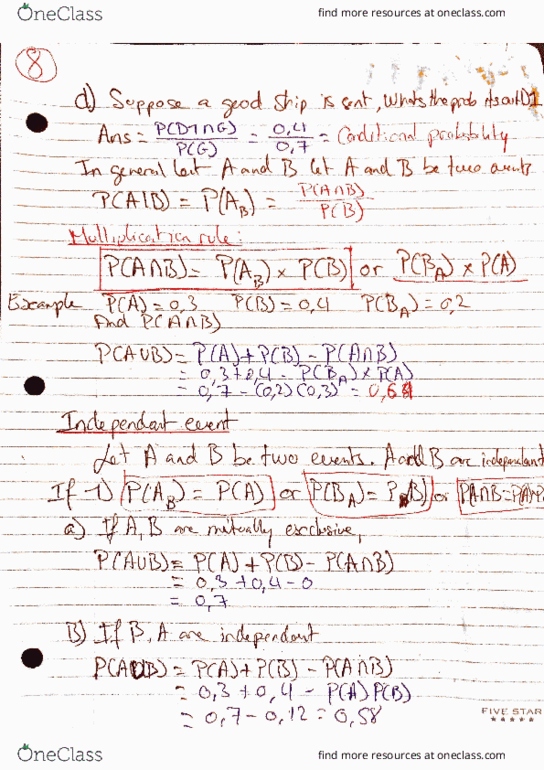 OneClass
find more resources at oneclass.com
8
d) Suppose a good ship is sent, Whats the prob its out D1
Ans = P(D1∩G)/P(G) = 0,41/0,7 = Conditional probability
In general let A and B let A and B be two events
P(A|B) = P(A_B) = P(A∩B)/P(B)
Multiplication rule:
P(A∩B) = P(A_B) × P(B) or P(B_A) × P(A)
Example P(A) = 0,3 P(B) = 0,4 P(B_A) = 0,2
And P(A∩B)
P(A∪B) = P(A) + P(B) - P(A∩B)
= 0,3 + 0,4 - P(B_A) × P(A)
= 0,7 - (0,2)(0,3) = 0,64
Independant event
Let A and B be two events. A and B are independant
If 1) P(A_B) = P(A) or P(B_A) = P(B) or
a) If A, B are mutually excclusive,
P(A∪B) = P(A) + P(B) - P(A∩B)
= 0,3 + 0,4 - 0
= 0,7
B) If B, A are independant
P(A∪B) = P(A) + P(B) - P(A∩B)
= 0,3 + 0,4 - P(A)P(B)
= 0,7 - 0,12 = 0,58
FIVE STAR
OneClass
find more resources at oneclass.com